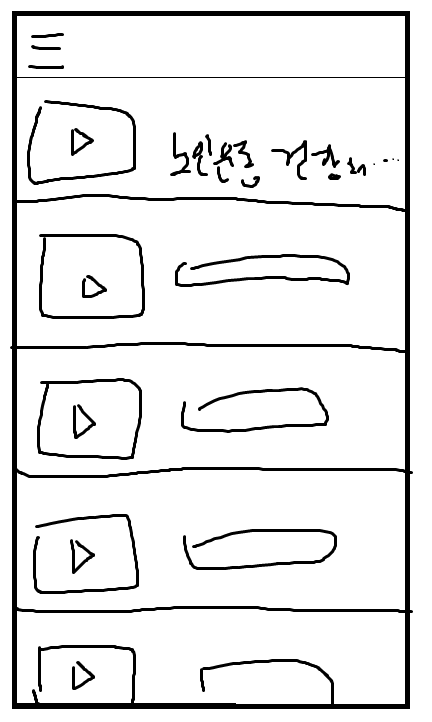 노인운동 건강의...